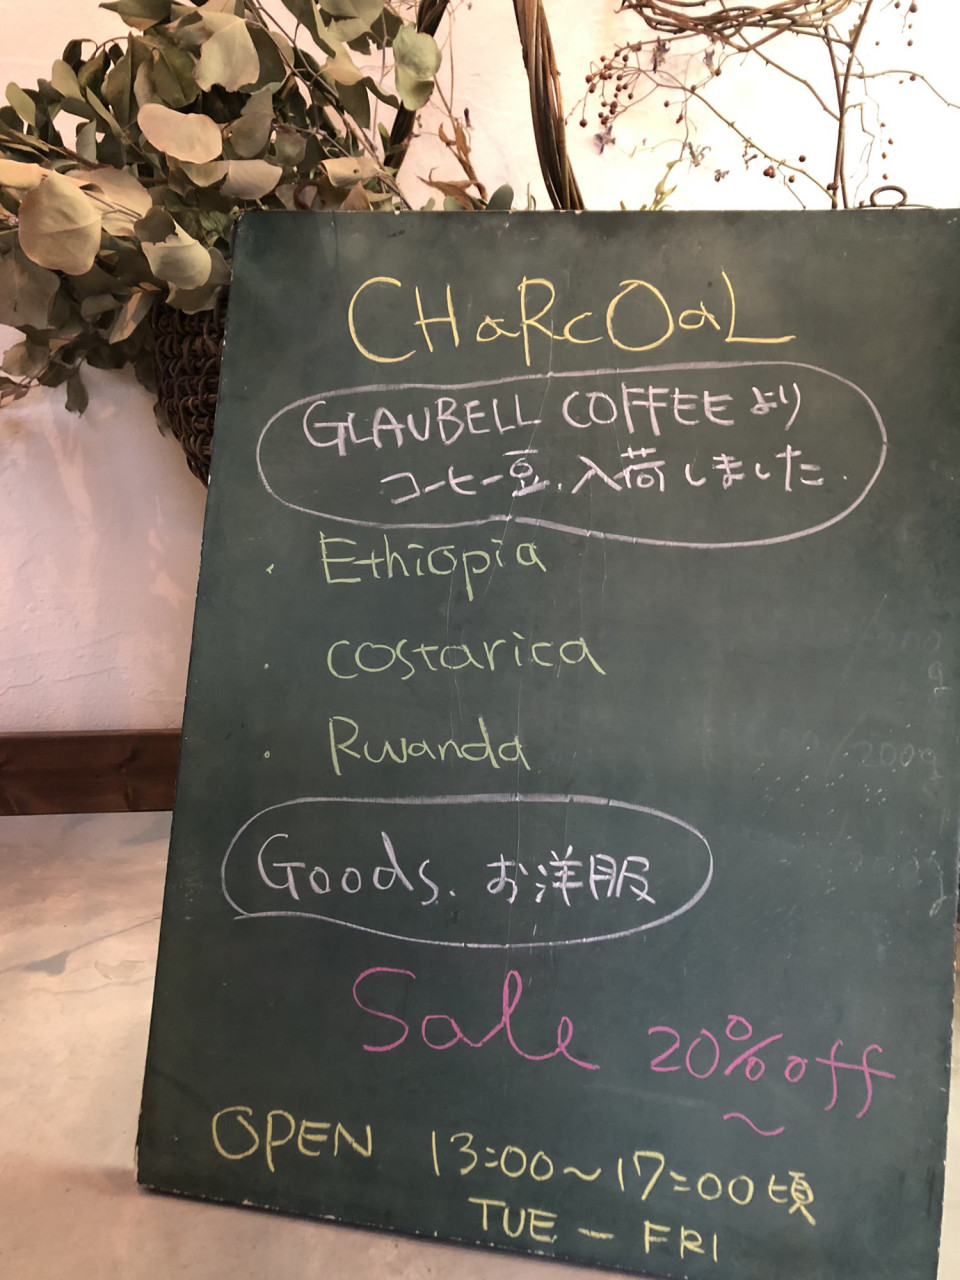 CHaRcOaL
GLAUBELL COFFEE より
コーヒー豆、入荷しました.
・ Ethiopia
・ costarica
・ Rwanda
Goods、お洋服
Sale 20%off
~
OPEN 13:00~17:00頃
TUE - FRI